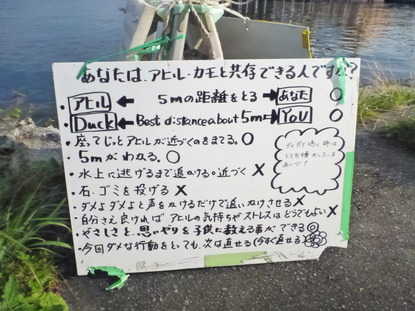 あなたは、アヒル・カモと共存できる人ですか?
・アヒル ← 5mの距離をとる → あなた ○
・Duck ← Best distance about 5m → YOU
・座ってじっとアヒルが近づくのをまてる。○
・5mがわかる。○
・水上に逃げるまで追いかける。近づく ×
・石・ゴミを投げる ×
・ダメよダメよと声をかけるだけで追いかけさせる ×
・自分さえ良ければアヒルの気持ちやストレスはどうでもよい ×
・やさしさと、思いやりを子供に教える事ができる ◎
・今回ダメな行動をとっても、次は直せる(今すぐ直せる)